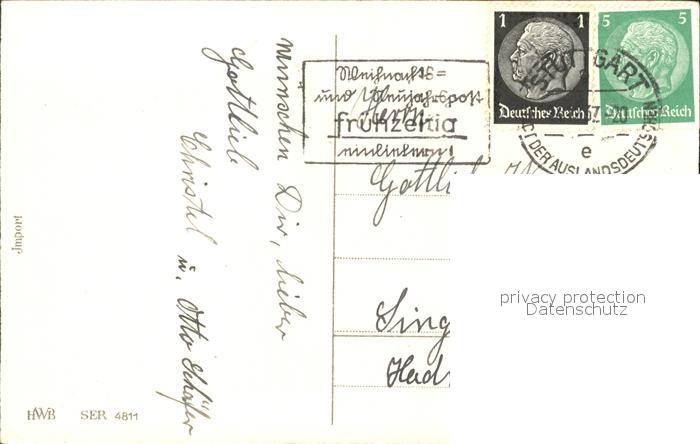 wünschen Dir, lieber
Gottlieb
Christel u. Otto Schäfer
Import
HWB SER 4811
Weihnachts=
und Neujahrspost
frühzeitig
einliefern!
Herrn
Gottli
Sing
Had
1 1
Deutsches Reich
5 5
Deutsches Reich
STUTTGART
37
e
DER AUSLANDSDEUTSCHEN
privacy protection
Datenschutz